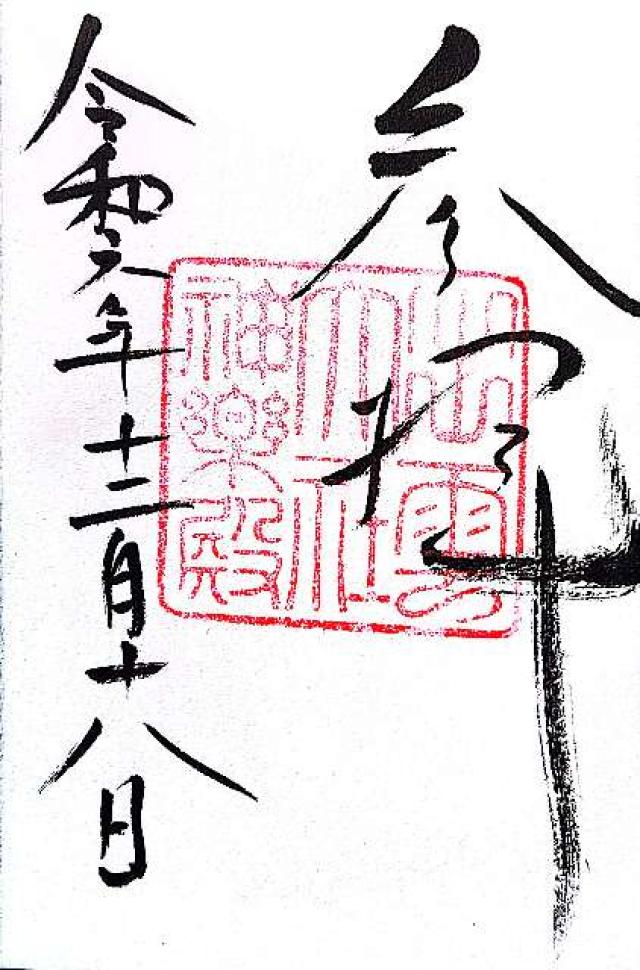 参拝
出雲
大社
神楽殿
令和六年十二月十八日